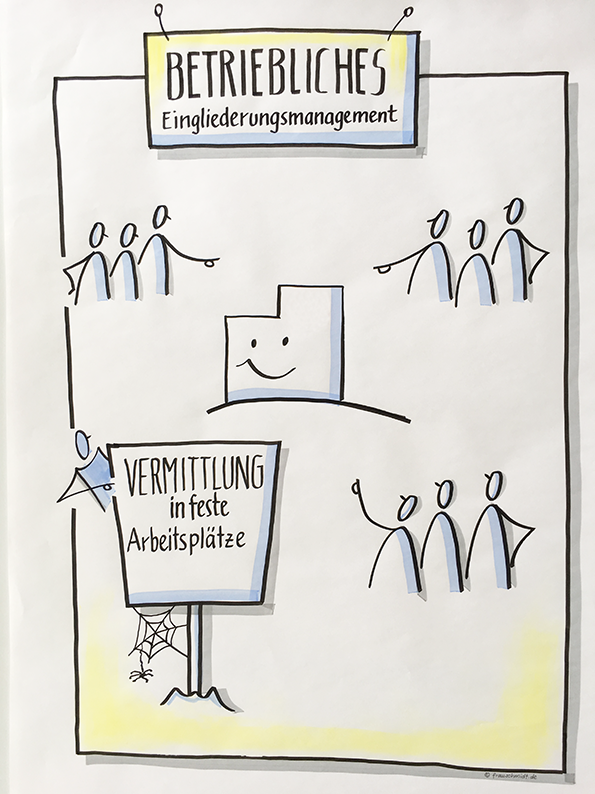 BETRIEBLICHES
Eingliederungsmanagement
VERMITTLUNG
in feste
Arbeitsplätze
© frauschmidt.de